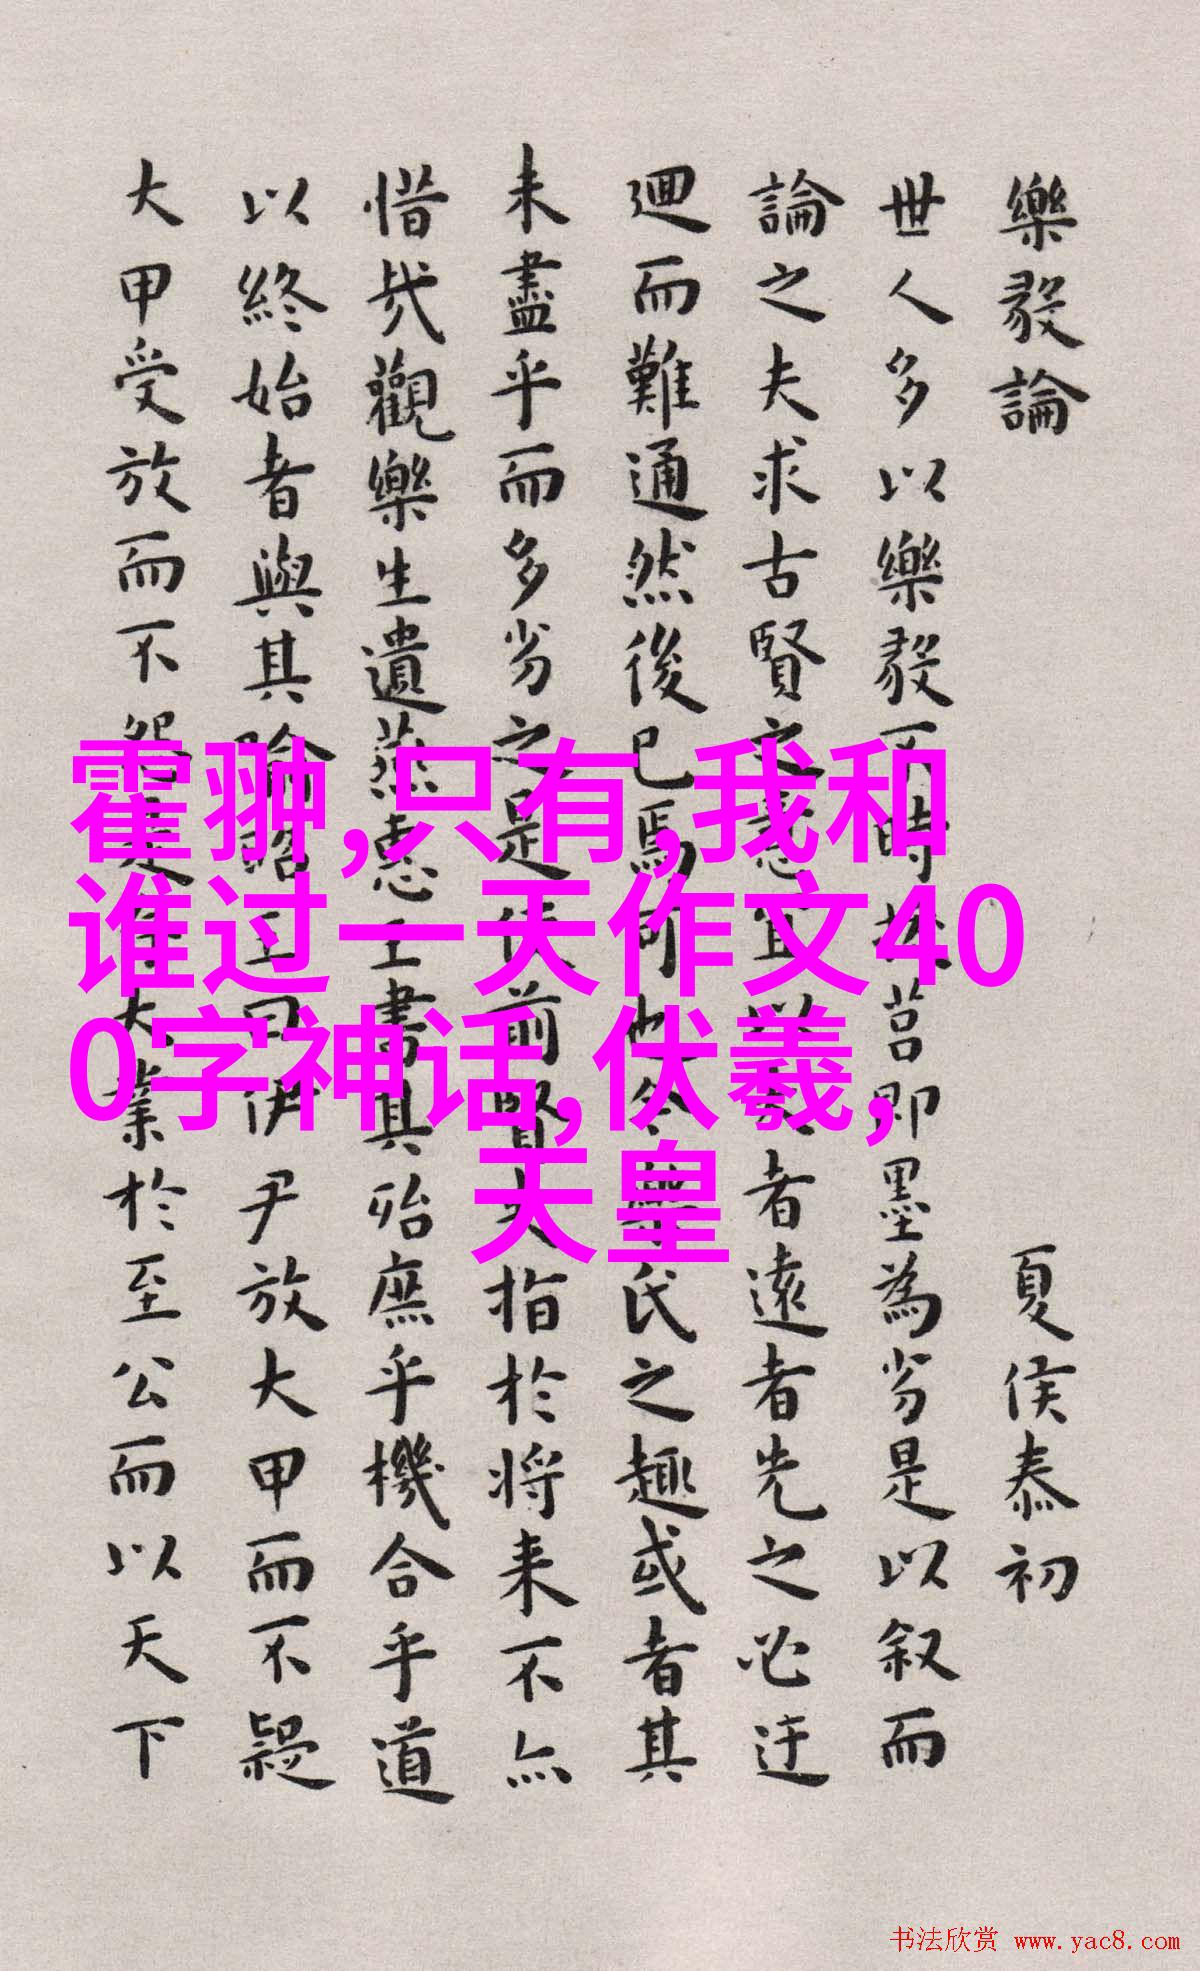 樂毅論 夏侯泰初
世人多以樂毅不時拔莒即墨為劣是以叙而
論之夫求古賢之意宜以大者遠者先之必迂
迴而難通然後已焉可也今樂氏之趣或者其
未盡乎而多劣之是使前賢失指於将来不亦
惜哉觀樂生遺燕惠王書其殆庶乎機合乎道
以終始者與其喻昭王曰伊尹放大甲而不疑
大甲受放而不怨是存大業於至公而以天下
霍翀,只有,我和
谁过一天作文40
0字神话,伏羲,
天皇
书法欣赏 www.yac8.com